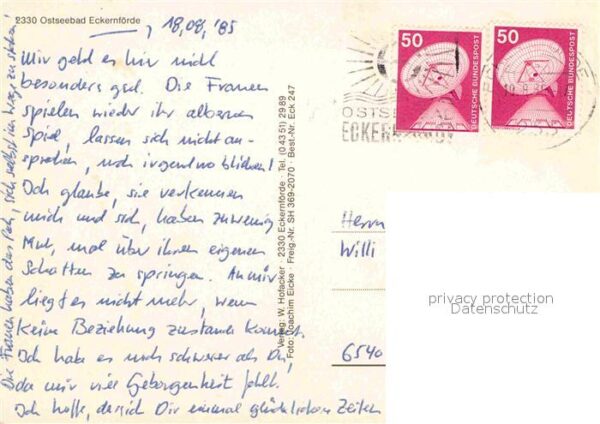 2330 Ostseebad Eckernförde
18.08.'85
Mir geht es hier nicht
besonders gut. Die Frauen
spielen wieder ihr albernes
Spiel, lassen sich nicht an-
sprechen, noch irgendwo blicken!
Ich glaube, sie verkennen
mich und sich, haben zuwenig
Mut, mal über ihren eigenen
Schatten zu springen. An mir
liegt es nicht mehr, wenn
keine Beziehung zustande kommt.
Ich habe es noch schwerer als Du,
da mir viel Geborgenheit fehlt.
Ich hoffe, daß ich Dir einmal glücklichere Zeiten
Die Frauen haben das Pech, sich selbst im Weg zu stehen!
Verlag: W. Hofacker · 2330 Eckernförde · Tel. (0 43 51) 29 89
Foto: Joachim Eicke · Freig.-Nr. SH 369-2070 · Best.-Nr. Eck 247
50
DEUTSCHE BUNDESPOST
50
DEUTSCHE BUNDESPOST
Herrn
Willi
6540
privacy protection
Datenschutz